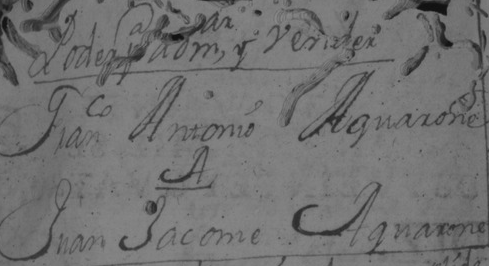 Poder pª admar, y Vender
Franco Antonio Aguarone
A
Juan Jacome Aguarone